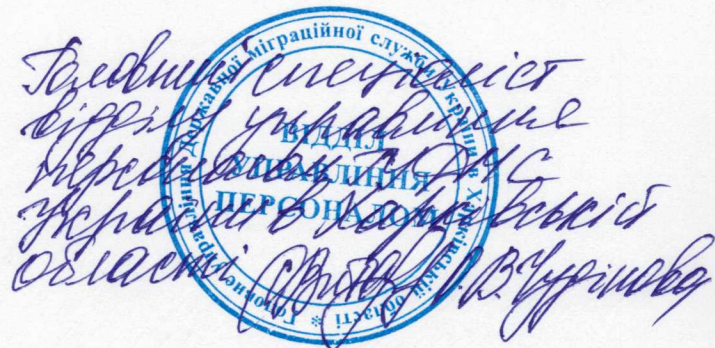 Головний спеціаліст
відділу управління
персоналом ГУДМС
України в Харківській
області О.В. Чудінова
Головне управління Державної міграційної служби України в Харківській області *
ВІДДІЛ
УПРАВЛІННЯ
ПЕРСОНАЛОМ